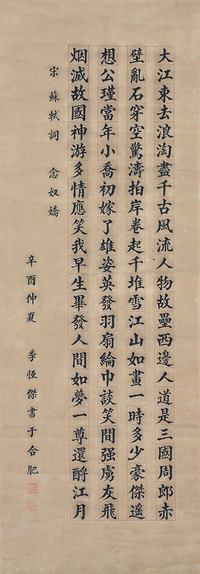 大江東去浪淘盡千古風流人物故壘西邊人道是三國周郎赤
壁亂石穿空驚濤拍岸卷起千堆雪江山如畫一時多少豪傑遙
想公瑾當年小喬初嫁了雄姿英發羽扇綸巾談笑間強虜灰飛
烟滅故國神游多情應笑我早生華發人間如夢一尊還酹江月
宋 蘇軾詞 念奴嬌
辛酉仲夏 李恆傑書于合肥